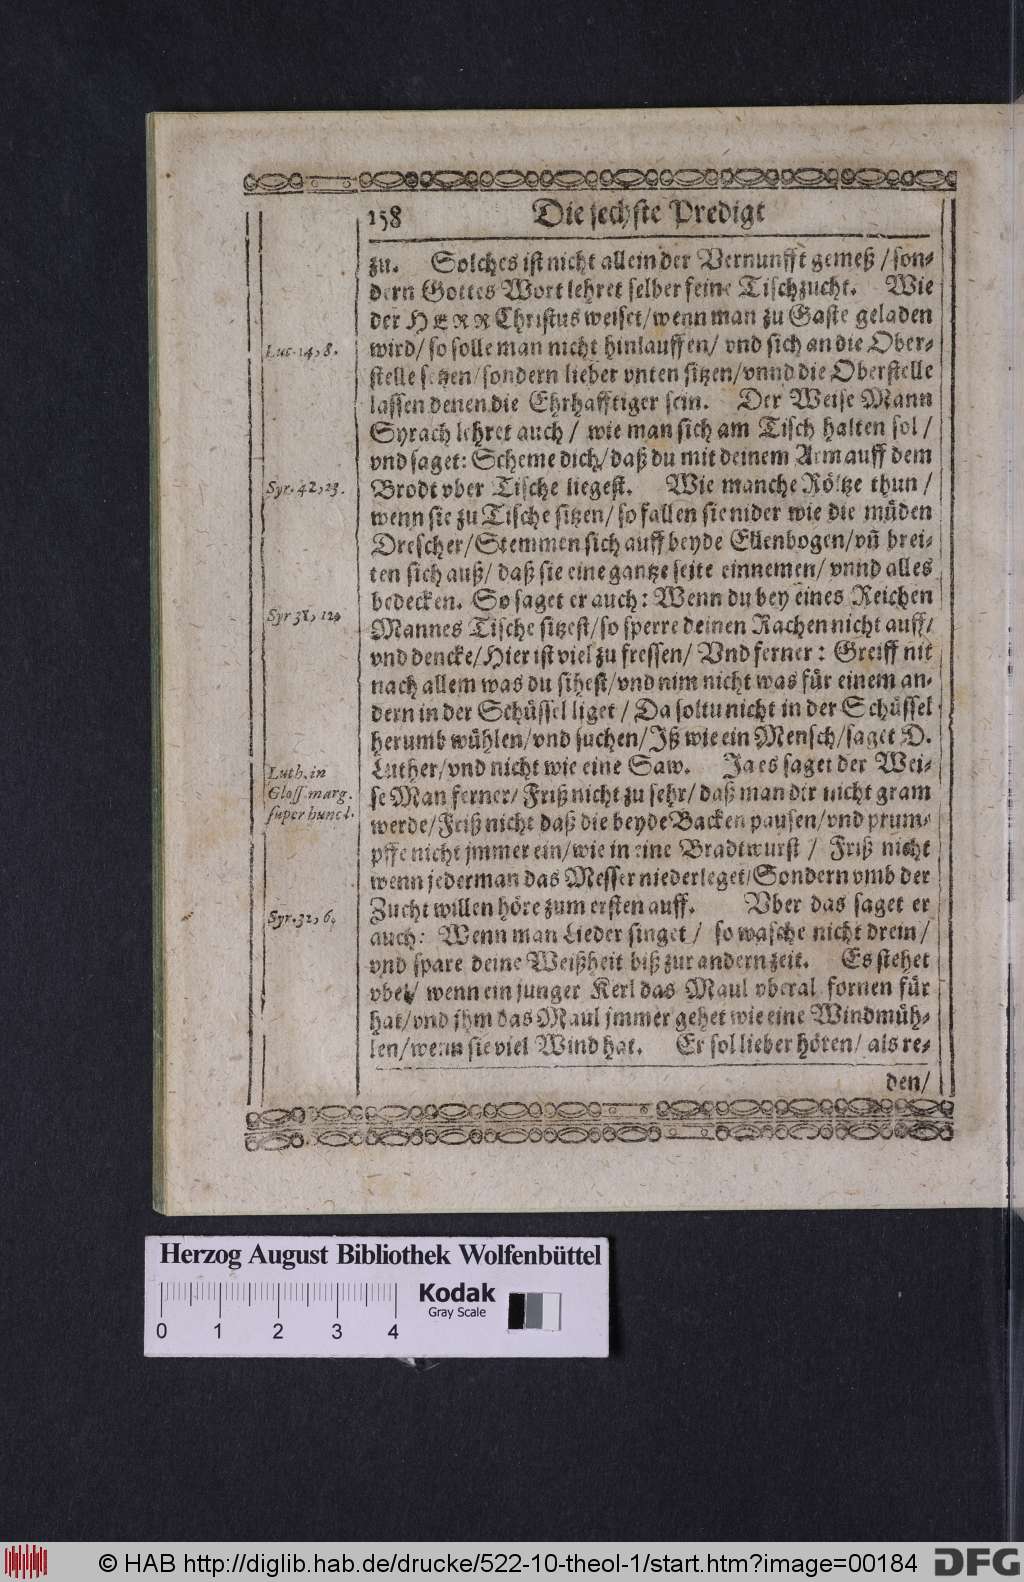 158 Die sechste Predigt
zu. Solches ist nicht allein der Vernunfft gemeß / son-
dern Gottes Wort lehret selber feine Tischzucht. Wie
der HERR Christus weiset/wenn man zu Gaste geladen
Luc. 14, 8. wird/ so solle man nicht hinlauffen/ vnd sich an die Ober-
stelle setzen/sondern lieber vnten sitzen/vnnd die Oberstelle
lassen denen die Ehrhafftiger sein. Der Weise Mann
Syrach lehret auch / wie man sich am Tisch halten sol /
vnd saget: Scheme dich/daß du mit deinem Arm auff dem
Syr. 42, 23. Brodt vber Tische liegest. Wie manche Röltze thun /
wenn sie zu Tische sitzen/ so fallen sie nider wie die müden
Drescher/Stemmen sich auff beyde Ellenbogen/vñ brei-
ten sich auß/ daß sie eine gantze seite einnemen/ vnnd alles
bedecken. So saget er auch: Wenn du bey eines Reichen
Syr 31, 12. Mannes Tische sitzest/so sperre deinen Rachen nicht auff/
vnd dencke/Hier ist viel zu fressen/ Vnd ferner: Greiff nit
nach allem was du sihest/vnd nim nicht was für einem an-
dern in der Schüssel liget / Da soltu nicht in der Schüssel
herumb wühlen/vnd suchen/Iß wie ein Mensch/saget D.
Luth. in Luther/vnd nicht wie eine Saw. Ja es saget der Wei-
Gloss. marg. se Man ferner/ Friß nicht zu sehr/ daß man dir nicht gram
super hunc l. werde/Friß nicht daß die beyde Backen pausen/vnd prum-
pffe nicht jmmer ein/wie in eine Bradtwurst / Friß nicht
wenn jederman das Messer niederleget/Sondern vmb der
Zucht willen höre zum ersten auff. Vber das saget er
Syr. 32, 6. auch: Wenn man Lieder singet / so wasche nicht drein/
vnd spare deine Weißheit biß zur andern zeit. Es stehet
vbel/ wenn ein junger Kerl das Maul vberal fornen für
hat/vnd jhm das Maul jmmer gehet wie eine Windmüh-
len/wenn sie viel Wind hat. Er sol lieber hören/ als re-
den/
Herzog August Bibliothek Wolfenbüttel
Kodak
Gray Scale
0 1 2 3 4
© HAB http://diglib.hab.de/drucke/522-10-theol-1/start.htm?image=00184
DFG